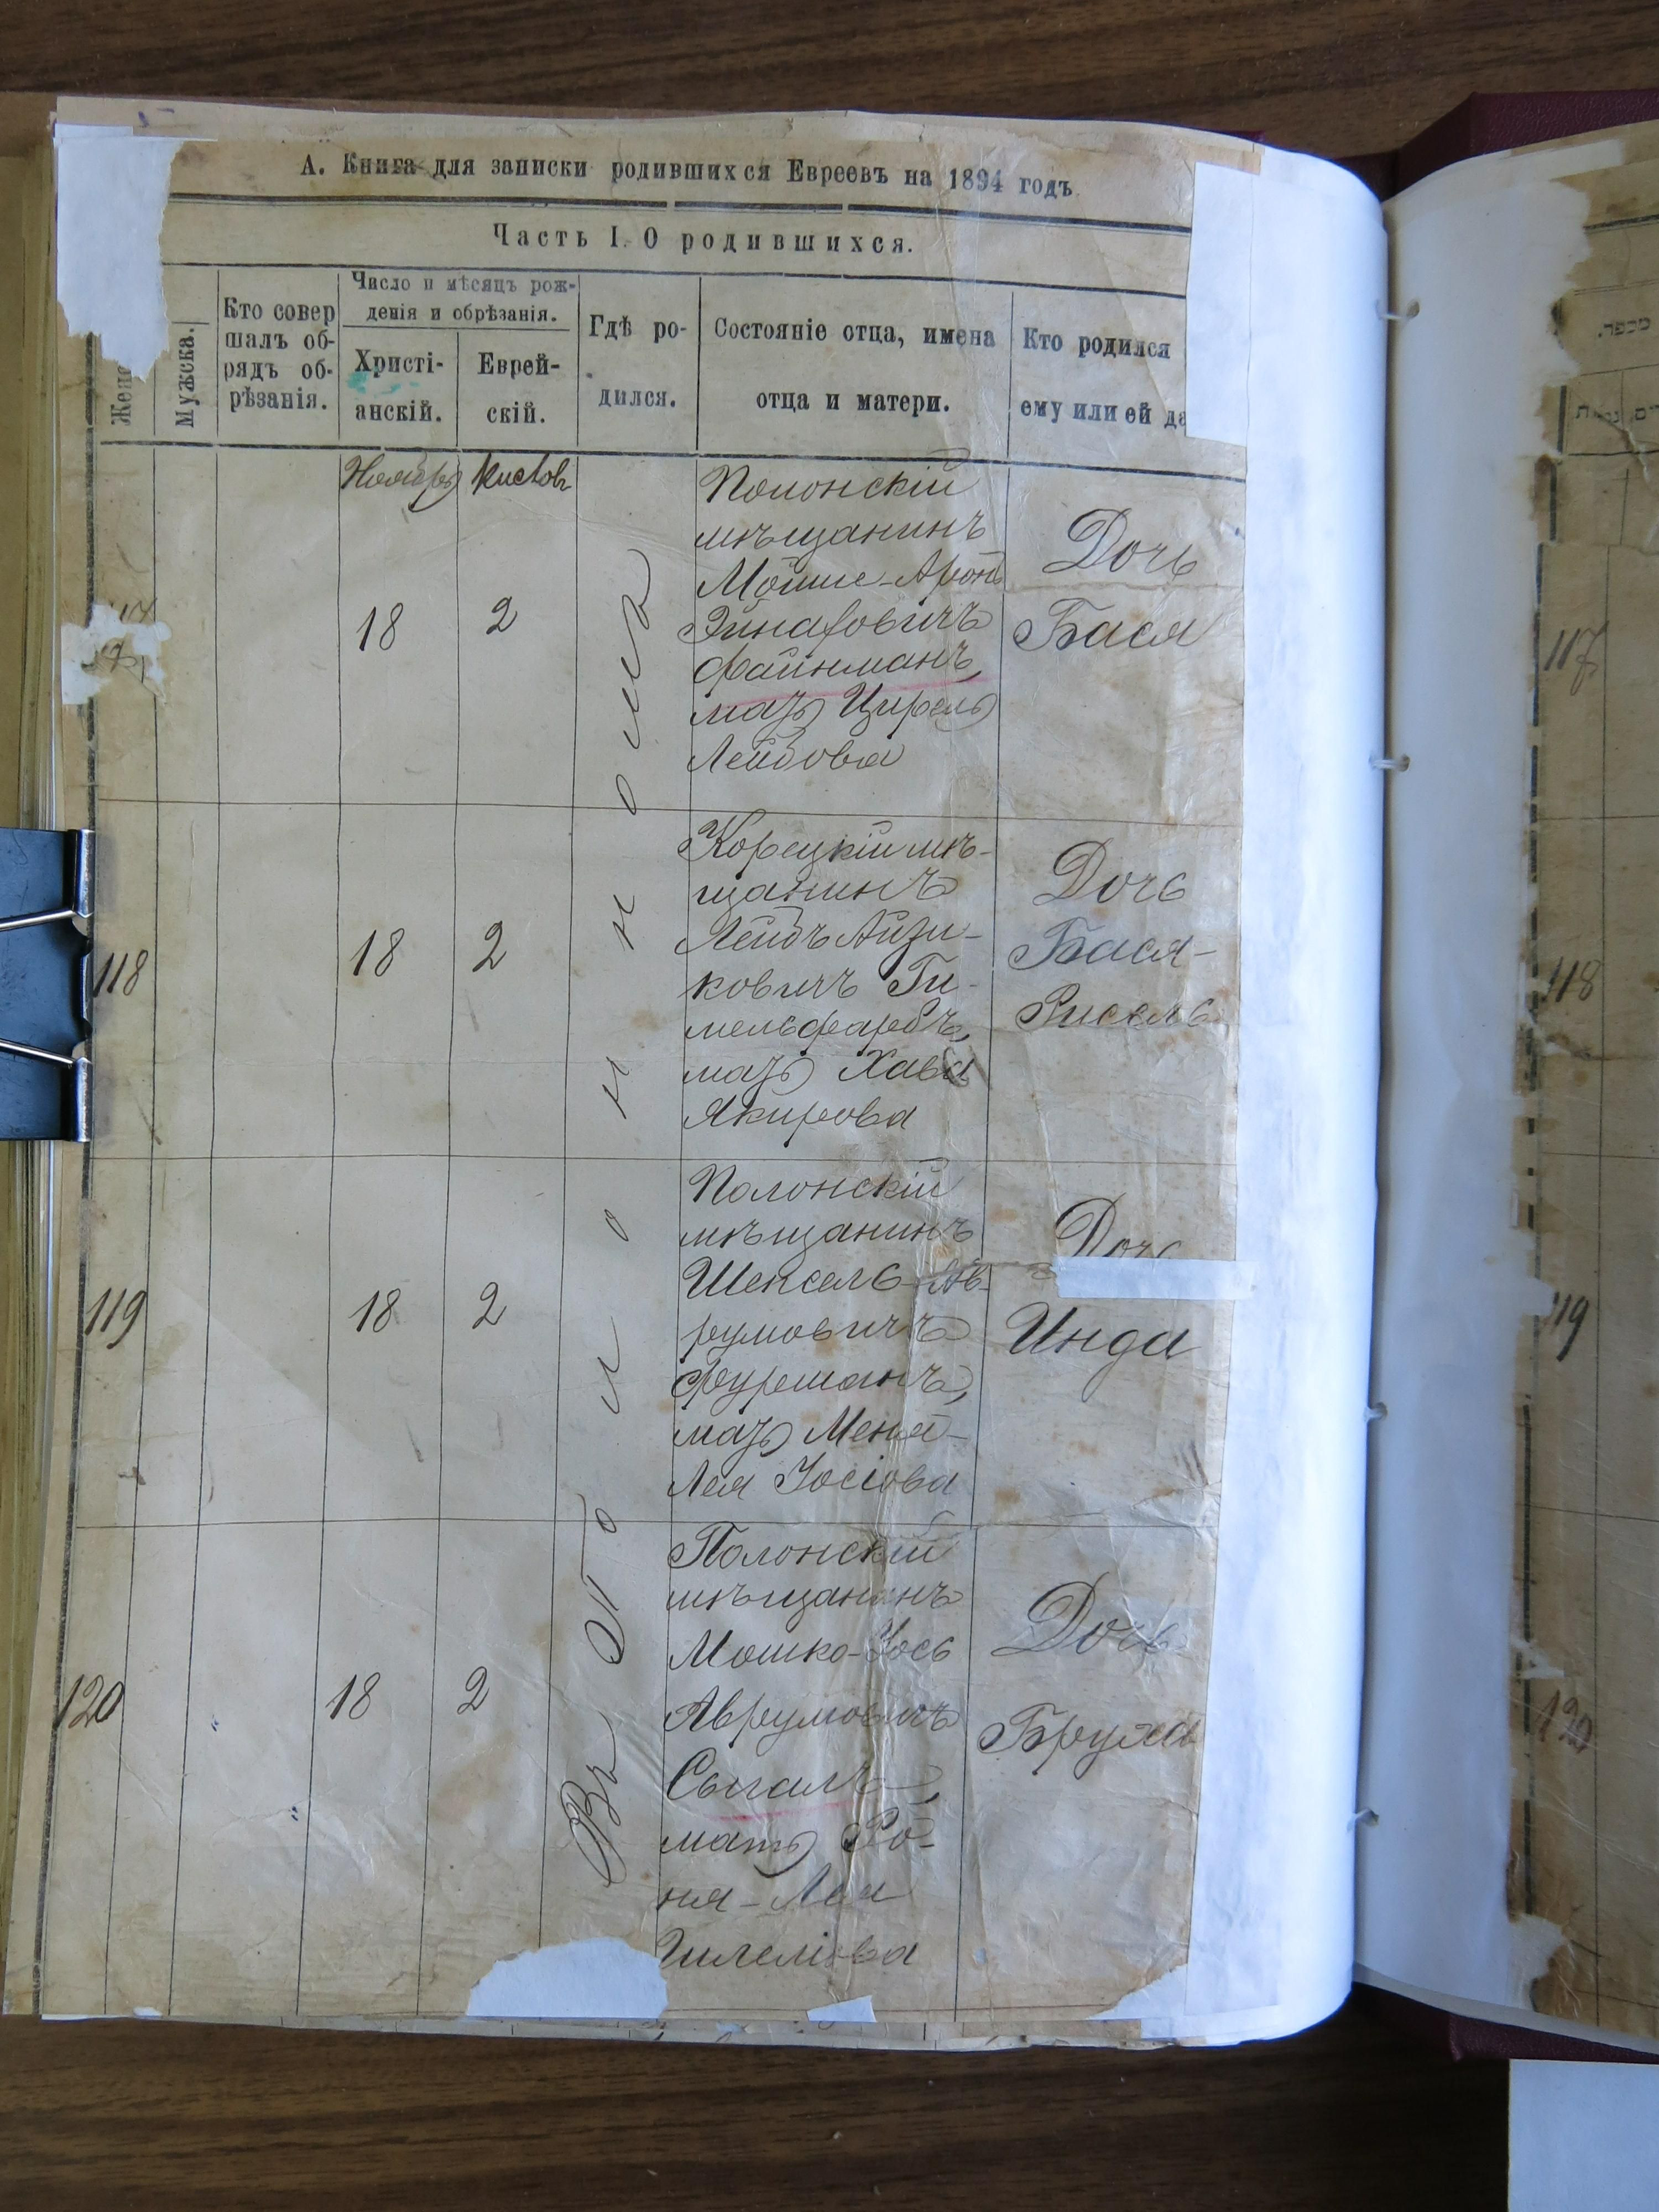 А. Книга для записки родившихся Евреевъ на 1894 годъ
Часть I. О родившихся.
Женс
Мужска.
Кто совер
шалъ об-
рядъ об-
рѣзанія.
Число и мѣсяцъ рож-
денія и обрѣзанія.
Христі-
анскій.
Еврей-
скій.
Гдѣ ро-
дился.
Состояніе отца, имена
отца и матери.
Кто родился
ему или ей да
Ноябрь
Кислов
Въ Полонномъ
18
2
Полонскій
мѣщанинъ
Мойше-Аронъ
Файнманъ,
мать Цирель
Лейбова
Дочь
Бася
118
18
2
Корецкій мѣ-
щанинъ
Лейбъ Айзи-
ковичъ Ги-
мельфарбъ,
мать Хава
Якирова
Дочь
Бася-
Рисель
119
18
2
Полонскій
мѣщанинъ
Шепсель Ав-
румовичъ
Фурманъ,
мать Меня-
Лея Іосіова
Дочь
Инда
120
18
2
Полонскій
мѣщанинъ
Мошко-Іось
Аврумовичъ
Сыгалъ,
мать Ро-
ня-Лея
Дочь
Бруха
117
118
119
120